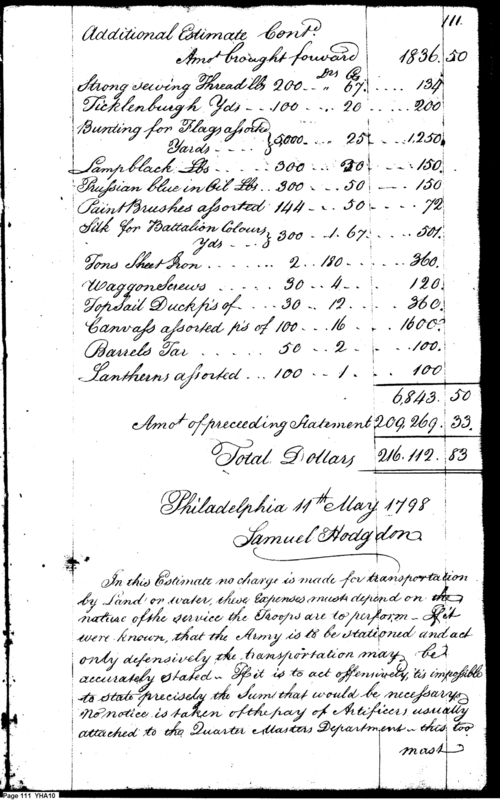 111.
Additional Estimate Cont.d
Amo.t brought forward 1836. 50
Drs Cs
Strong sewing Thread lb 200 .. " 67. .... 134
Ticklenburgh Yds .. 100 .. .. 20 ... 200
Bunting for Flags assorted
Yards } 5,000 ... 25 .... 1.250.
Lampblack Lbs ... 300 ... 50 .... 150.
Prussian blue in Oil Lbs. 300 ... 50 .... 150
Paint Brushes assorted 144 .. . 50 .... 72
Silk for Battalion Colours
Yds } 300 .. 1. 67. .... 501.
Tons Sheet Iron ....... 2 .. 180 .... 360.
Waggon Screws ..... 30 .. 4 .... 120
Top Sail Duck p.s of .... 30 .. 12 .... 360.
Canvass assorted p.s of 100 .. 16 .... 1600.
Barrels Tar ...... 50 .. 2 .... 100.
Lantherns assorted ... 100 .. 1 .... 100
6,843. 50
Amo.t of preceeding Statement 209,269. 33.
Total Dollars 216.112. 83
Philadelphia 11th May 1798
Samuel Hodgdon
In this Estimate no charge is made for transportation
by Land or water, these Expenses must depend on the
nature of the service the Troops are to perform - If it
were known, that the Army is to be stationed and act
only defensively the transportation may be
accurately stated - If it is to act offensively, 'tis impossible
to state precisely the Sum that would be necessary
No notice is taken of the pay of Artificers usually
attached to the Quarter Masters Department - this too
must
Page 111 YHA10